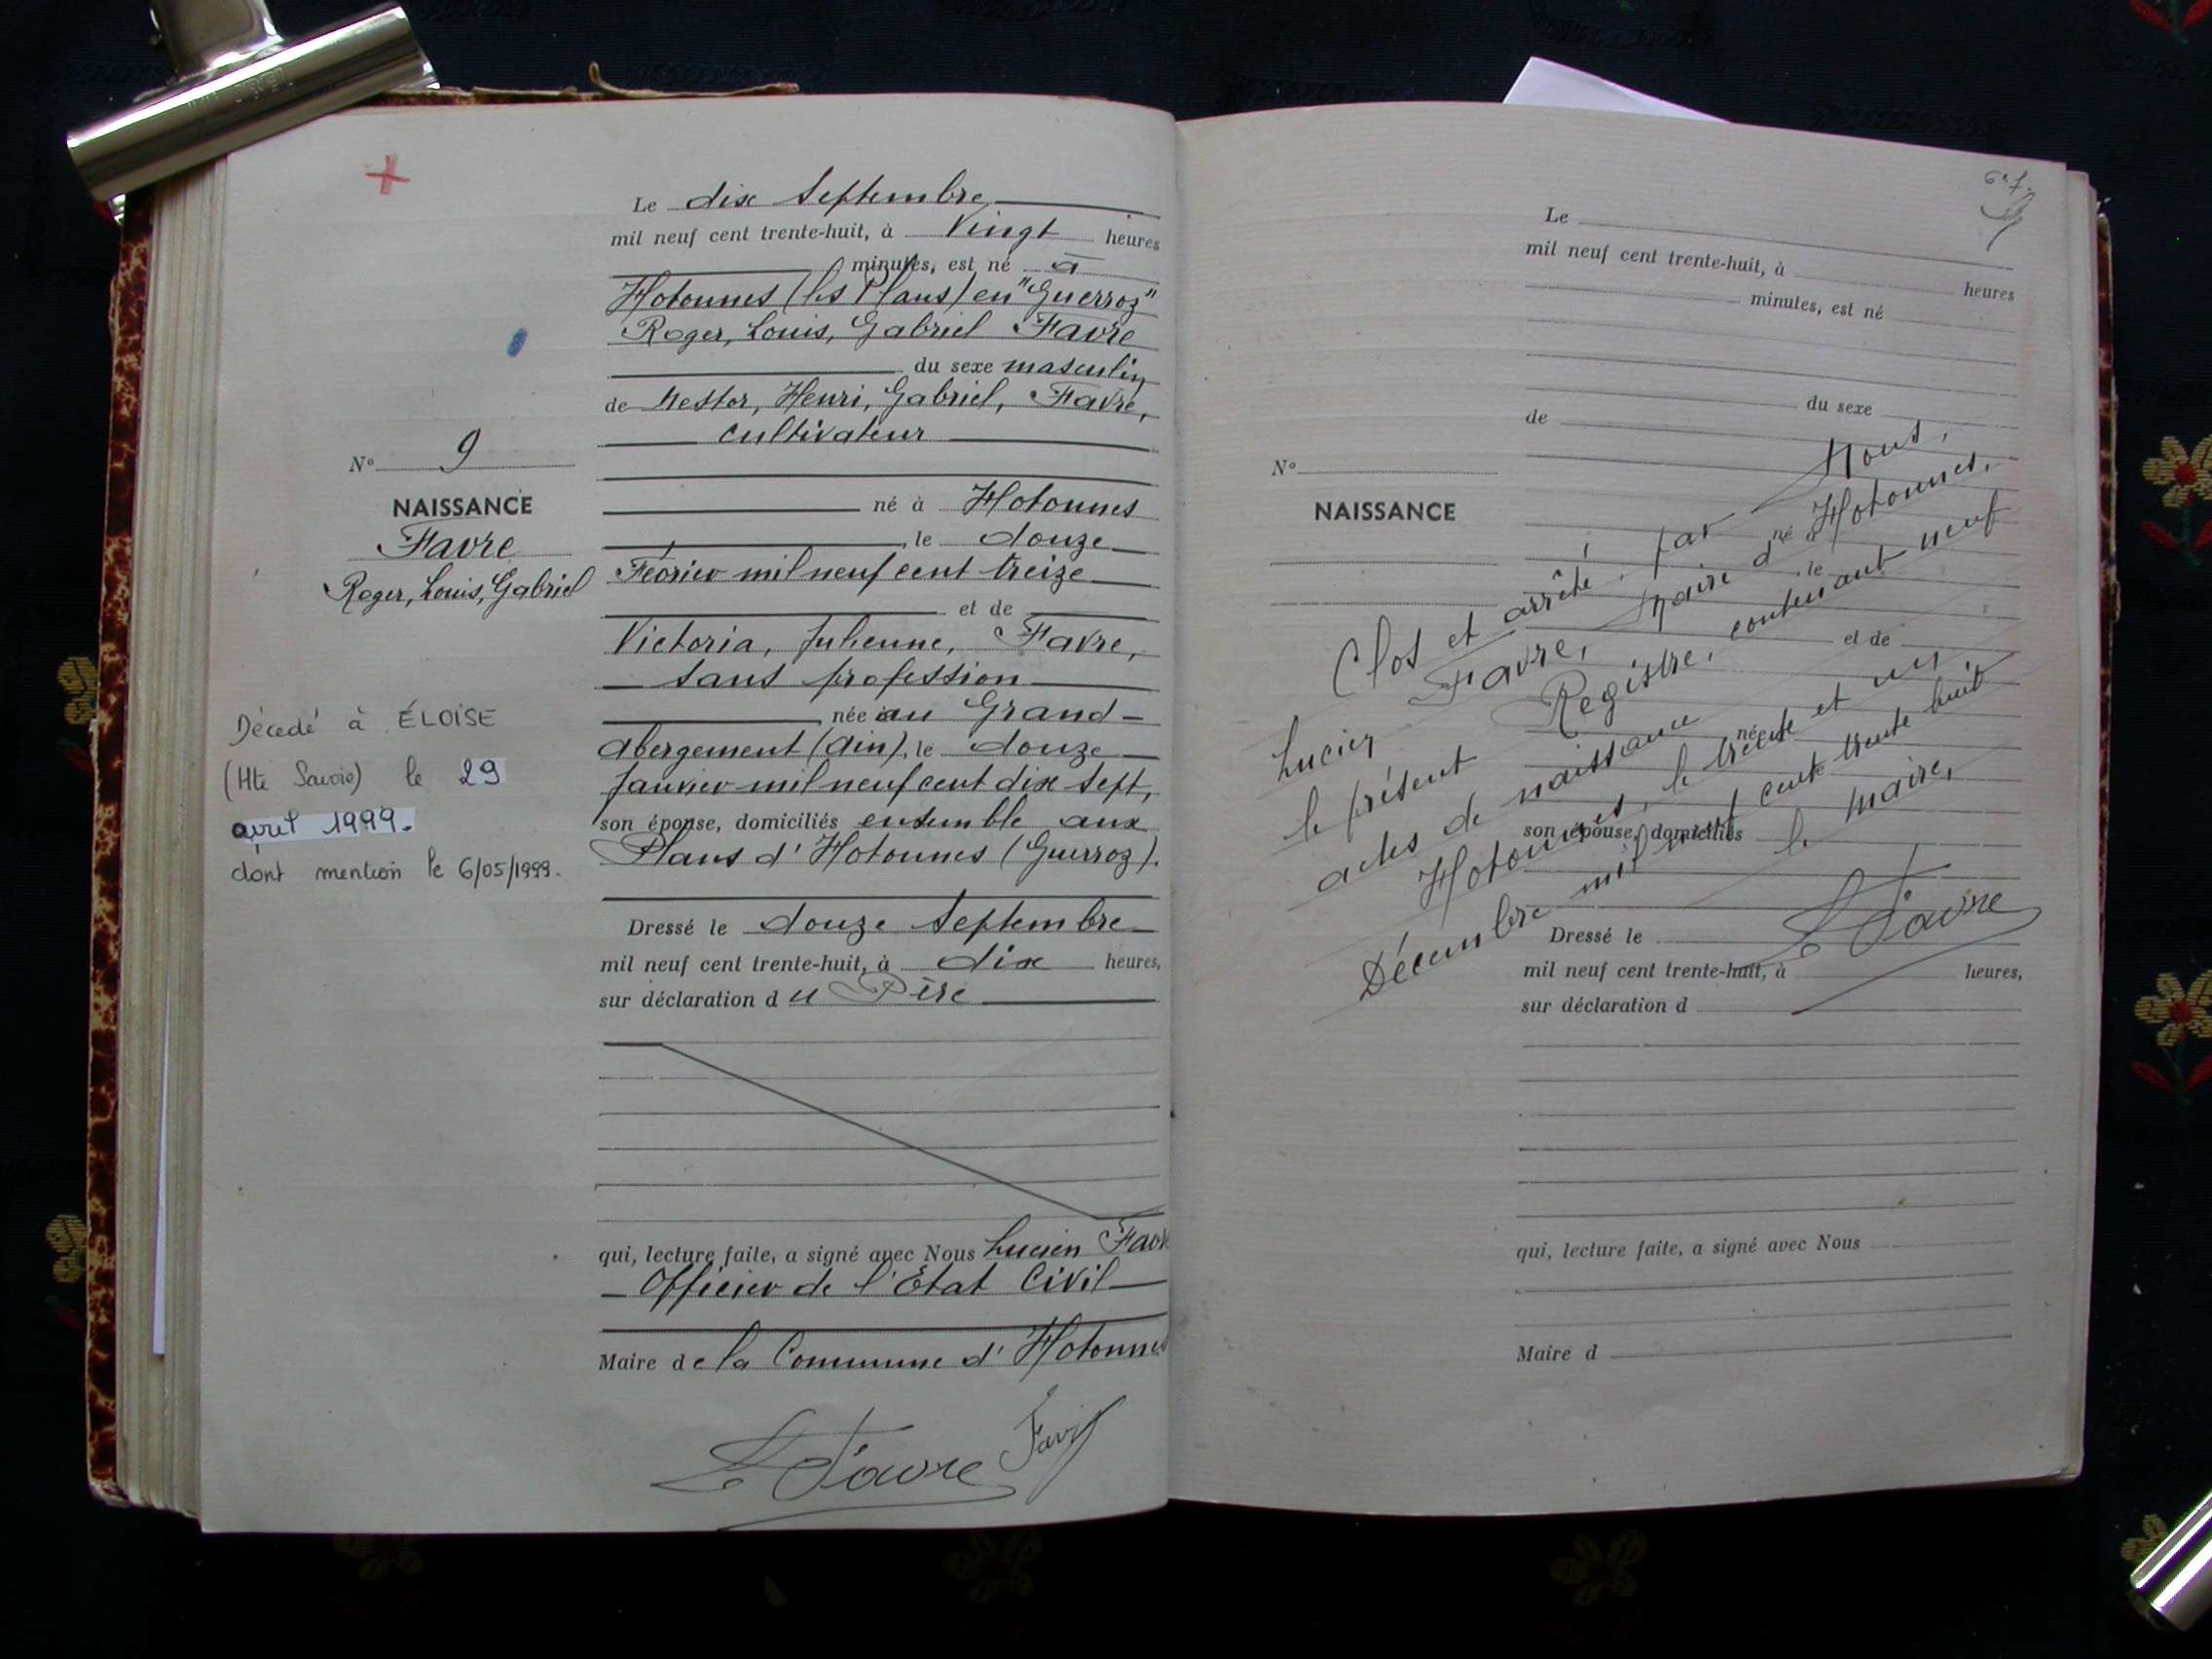 Le dix Septembre
mil neuf cent trente-huit, à Vingt heures
minutes, est né à
Hotonnes (les Plans) en "Guerroz"
Roger, Louis, Gabriel Favre
du sexe masculin
de Nestor, Henri, Gabriel, Favre,
cultivateur
né à Hotonnes
, le douze
Février mil neuf cent treize
et de
Victoria, Julienne, Favre,
sans profession
née au Grand-
Abergement (Ain), le douze
Janvier mil neuf cent dix sept,
son épouse, domiciliés ensemble aux
Plans d'Hotonnes (Guerroz).
Dressé le douze Septembre
mil neuf cent trente-huit, à dix heures,
sur déclaration du Père
qui, lecture faite, a signé avec Nous Lucien Favre
Officier de l'Etat Civil
Maire de la Commune d'Hotonnes
L Favre Favre
N° 9
NAISSANCE
Favre
Roger, Louis, Gabriel
Décédé à ÉLOISE
(Hte Savoie) le 29
avril 1999.
dont mention le 6/05/1999.
Le
mil neuf cent trente-huit, à heures
minutes, est né
du sexe
de
né à
, le
et de
née
son épouse, domiciliés
Dressé le
mil neuf cent trente-huit, à heures,
sur déclaration d
qui, lecture faite, a signé avec Nous
Maire d
N°
NAISSANCE
Clos et arrêté, par Nous,
Lucien Favre, Maire d'Hotonnes,
le présent Registre, contenant neuf
actes de naissance
Hotonnes, le trente et un
Décembre mil neuf cent trente huit
le Maire,
L Favre